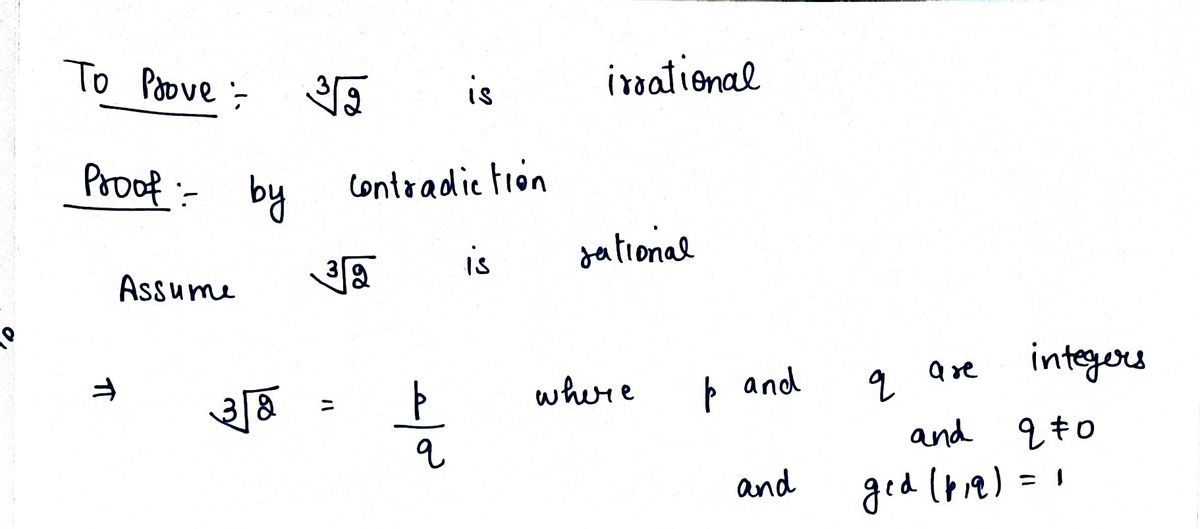 To Prove :- ∛2 is irrational
Proof :- by contradiction
Assume ∛2 is rational
⇒ ∛2 = p/q where p and q are integers
and q ≠ 0
and gcd (p,q) = 1